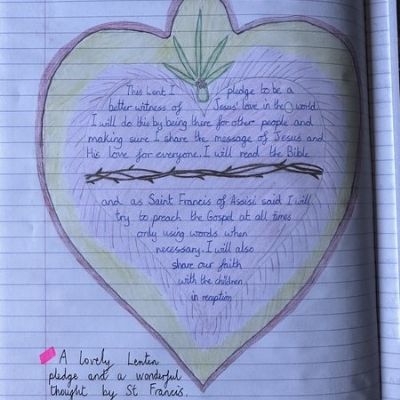 This Lent I pledge to be a
better witness of Jesus' love in the world.
I will do this by being there for other people and
making sure I share the message of Jesus and
His love for everyone. I will read the Bible
and as Saint Francis of Assisi said I will
try to preach the Gospel at all times
only using words when
necessary. I will also
share our faith
with the children
in reception
A lovely Lenten
pledge and a wonderful
thought by St Francis.